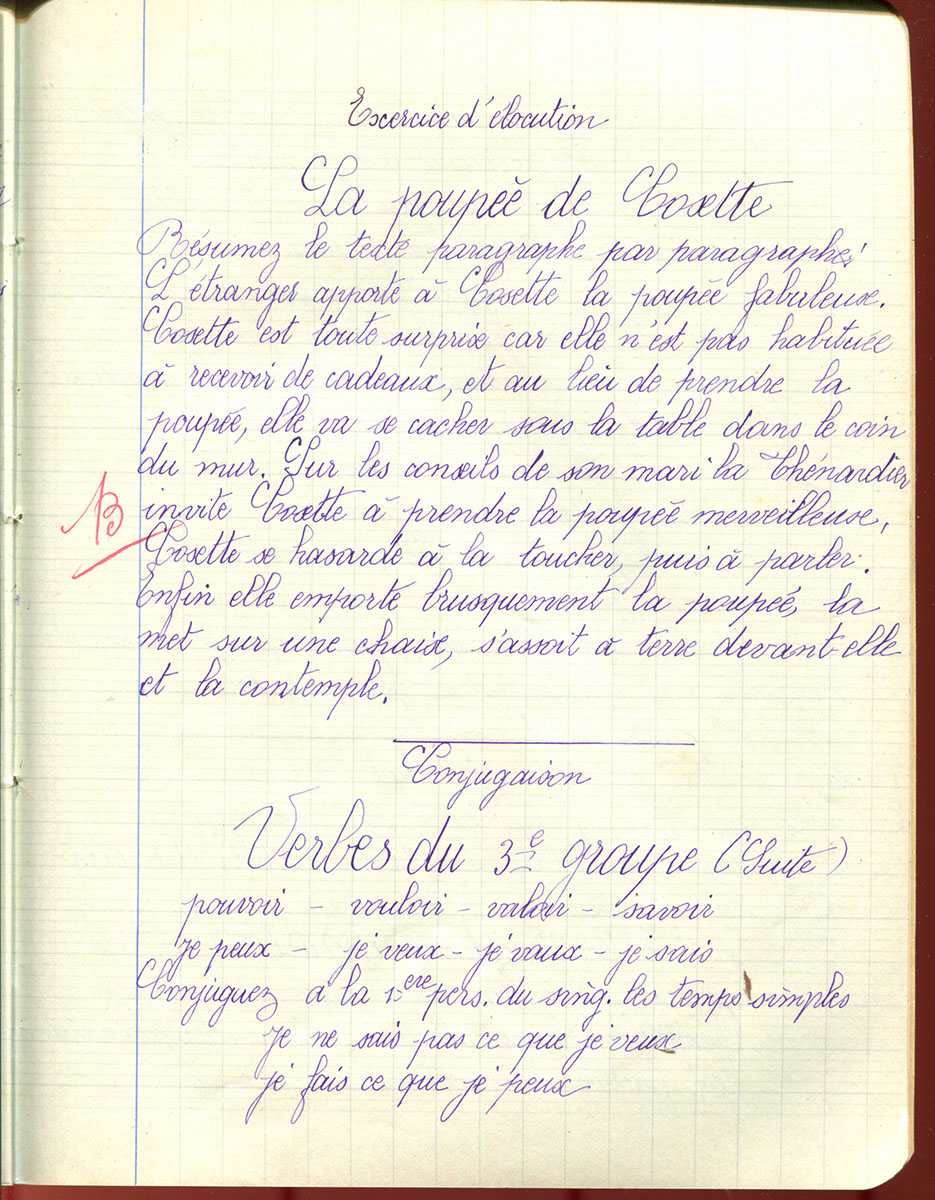 Exercice d'élocution
La poupée de Cosette
Résumez le texte paragraphe par paragraphe!
L'étranger apporte à Cosette la poupée fabuleuse.
Cosette est toute surprise car elle n'est pas habituée
à recevoir de cadeaux, et au lieu de prendre la
poupée, elle va se cacher sous la table dans le coin
du mur. Sur les conseils de son mari la Thénardier
B
invite Cosette à prendre la poupée merveilleuse,
Cosette se hasarde à la toucher, puis à parler.
Enfin elle emporte brusquement la poupée, la
met sur une chaise, s'assoit à terre devant-elle
et la contemple.
Conjugaison
Verbes du 3e groupe (Suite)
pouvoir - vouloir - valoir - savoir
je peux - je veux - je vaux - je sais
Conjuguez à la 1ere pers. du sing. les temps simples
je ne sais pas ce que je veux
je fais ce que je peux